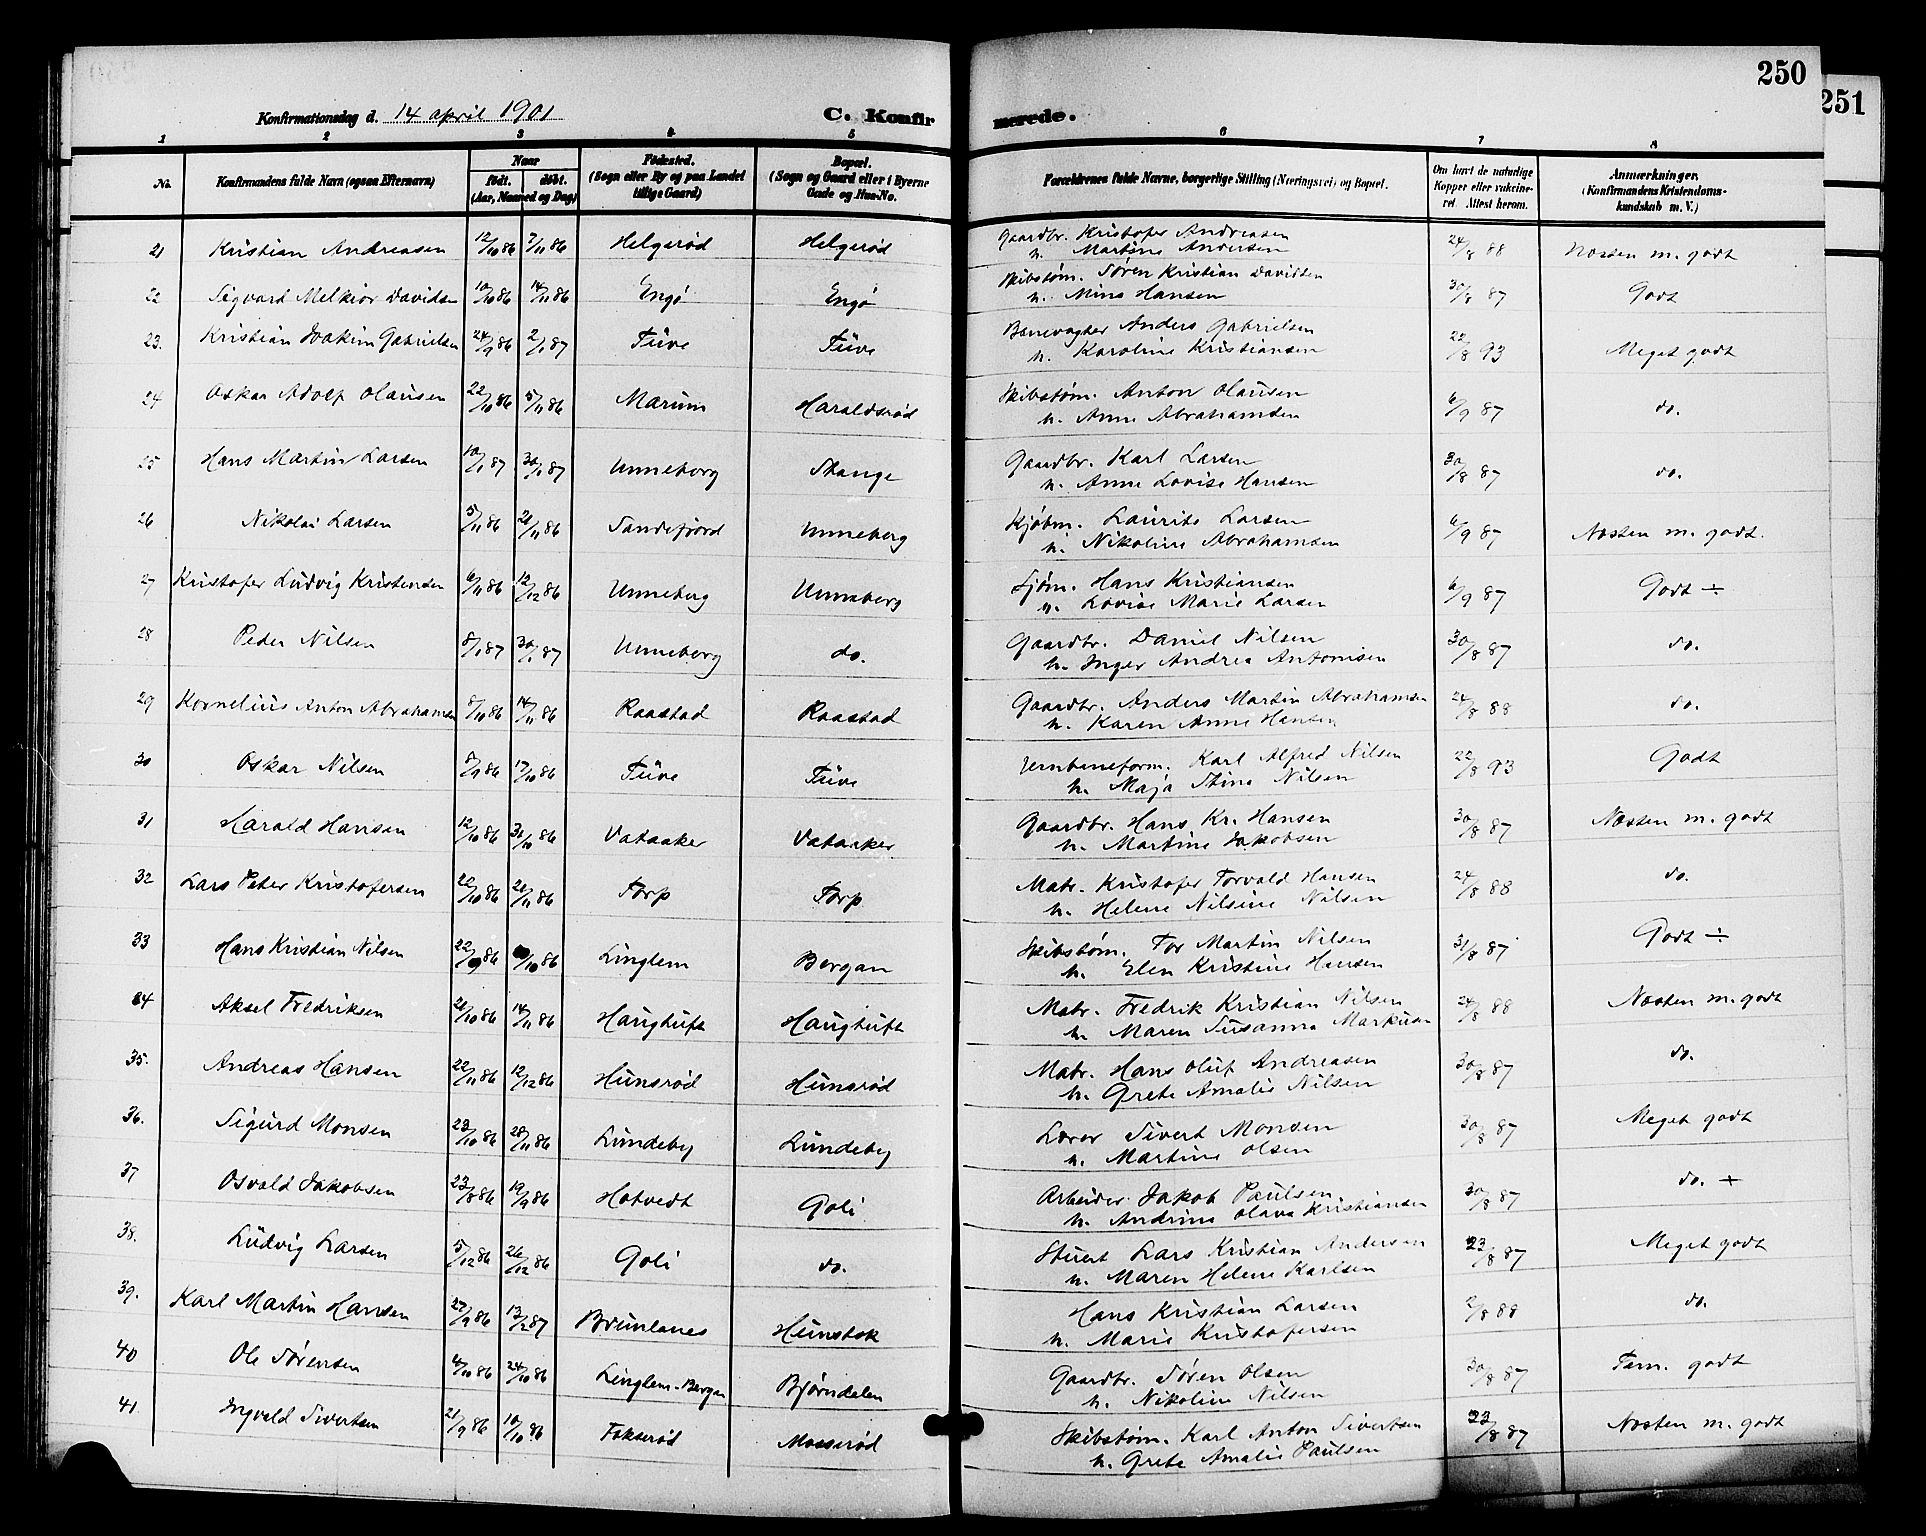 250
251
Konfirmationsdag d. 14 april 1901 C. Konfir merede.
1 2 3 4 5 6 7 8
No. Konfirmandens fulde Navn (ogsaa Efternavn) Naar født. døbt. (Aar, Maaned og Dag) Fødested. (Sogn eller By og paa Landet tillige Gaard) Bopæl. (Sogn og Gaard eller i Byerne Gade og Hus-No. Forældrenes fulde Navne, borgerlige Stilling (Næringsvei) og Bopæl. Om havt de naturlige Kopper eller vakcineret. Attest herom. Anmærkninger. (Konfirmandens Kristendomskundskab m. V.)
21 Kristian Andreasen 12/10 86 7/11 86 Helgerød Helgerød Gaardbr. Kristofer Andreasen 24/8 88 Næsten m. godt
h. Martine Andersen
22 Sigvard Melkior Davidsen 10/10 86 14/11 86 Engø Engø Skibstøm. Søren Kristian Davidsen 30/8 87 Godt
h. Mina Hansen
23. Kristian Joakim Gabrielsen 24/9 86 2/1 87 Tuve Tuve Banevogter Anders Gabrielsen 22/8 93 Meget godt
h. Karoline Kristiansen
24 Oskar Adolf Olausen 22/10 86 5/11 86 Marum Haraldsrød Skibstøm. Anton Olausen 6/9 87 do.
h. Anne Abrahamsen
25 Hans Martin Larsen 10/1 87 30/1 87 Unneberg Stange Gaardbr. Karl Larsen 30/8 87 do.
h. Anne Lovise Hansen
26 Nikolai Larsen 5/11 86 21/11 86 Sandefjord Unneberg Kjøbm. Laurits Larsen 6/9 87 Næsten m. godt.
h. Nikoline Abrahamsen
27 Kristofer Ludvig Kristensen 6/11 86 12/12 86 Unneberg Unneberg Sjøm. Hans Kristiansen 6/9 87 Godt ÷
h. Lovise Marie Larsen
28 Peder Nilsen 8/1 87 30/1 87 Unneberg do. Gaardbr. Daniel Nilsen 30/8 87 do.
h. Inger Andrea Antonisen
29 Kornelius Anton Abrahamsen 8/10 86 14/11 86 Raastad Raastad Gaardbr. Anders Martin Abrahamsen 24/8 88 do.
h. Karen Anne Hansen
30 Oskar Nilsen 8/9 86 17/10 86 Tuve Tuve Jernbaneform. Karl Alfred Nilsen 22/8 93 Godt
h. Maja Stina Nilsen
31 Harald Hansen 12/10 86 31/10 86 Vataaker Vataaker Gaardbr. Hans Kr. Hansen 30/8 87 Næsten m. godt
h. Martine Jakobsen
32 Lars Peter Kristofersen 22/10 86 21/11 86 Torp Torp Matr. Kristofer Torvald Hansen 24/8 88 do.
h. Helene Nilsine Nilsen
33 Hans Kristian Nilsen 22/9 86 /10 86 Linglem Bergan Skibstøm. Tor Martin Nilsen 31/8 87 Godt ÷
h. Elen Kristine Hansen
34 Aksel Fredriksen 21/10 86 14/11 86 Haughuft Haughuft Matr. Fredrik Kristian Nilsen 24/8 88 Næsten m. godt
h. Maren Susanna Markusen
35. Andreas Hansen 22/11 86 12/12 86 Hunsrød Hunsrød Matr. Hans Oluf Andreasen 30/8 87 do.
h. Grete Amalie Nilsen
36. Sigurd Monsen 23/10 86 28/11 86 Lundeby Lundeby Lærer Sivert Monsen 30/8 87 Meget godt
h. Martine Olsen
37 Osvald Jakobsen 23/8 86 19/9 86 Hotvedt Goli Arbeider. Jakob Paulsen 30/8 87 do. +
h. Andrine Olava Kristiansen
38. Ludvig Larsen 5/12 86 26/12 86 Goli do. Stuert Lars Kristian Andersen 23/8 87 Meget godt
h. Maren Helene Karlsen
39. Karl Martin Hansen 27/9 86 13/2 87 Brunlanes Hunstok Hans Kristian Larsen 2/8 88 do.
h. Marie Kristofersen
40 Ole Sørensen 4/10 86 24/10 86 Linglem-Bergan Bjørndalen Gaardbr. Søren Olsen 30/8 87 Tem. godt
h. Nikoline Nilsen
41 Ingvald Sivertsen 21/9 86 10/10 86 Fokserød Mosserød Skibstøm. Karl Anton Sivertsen 23/8 87 Næsten m. godt
h. Grete Amalie Paulsen